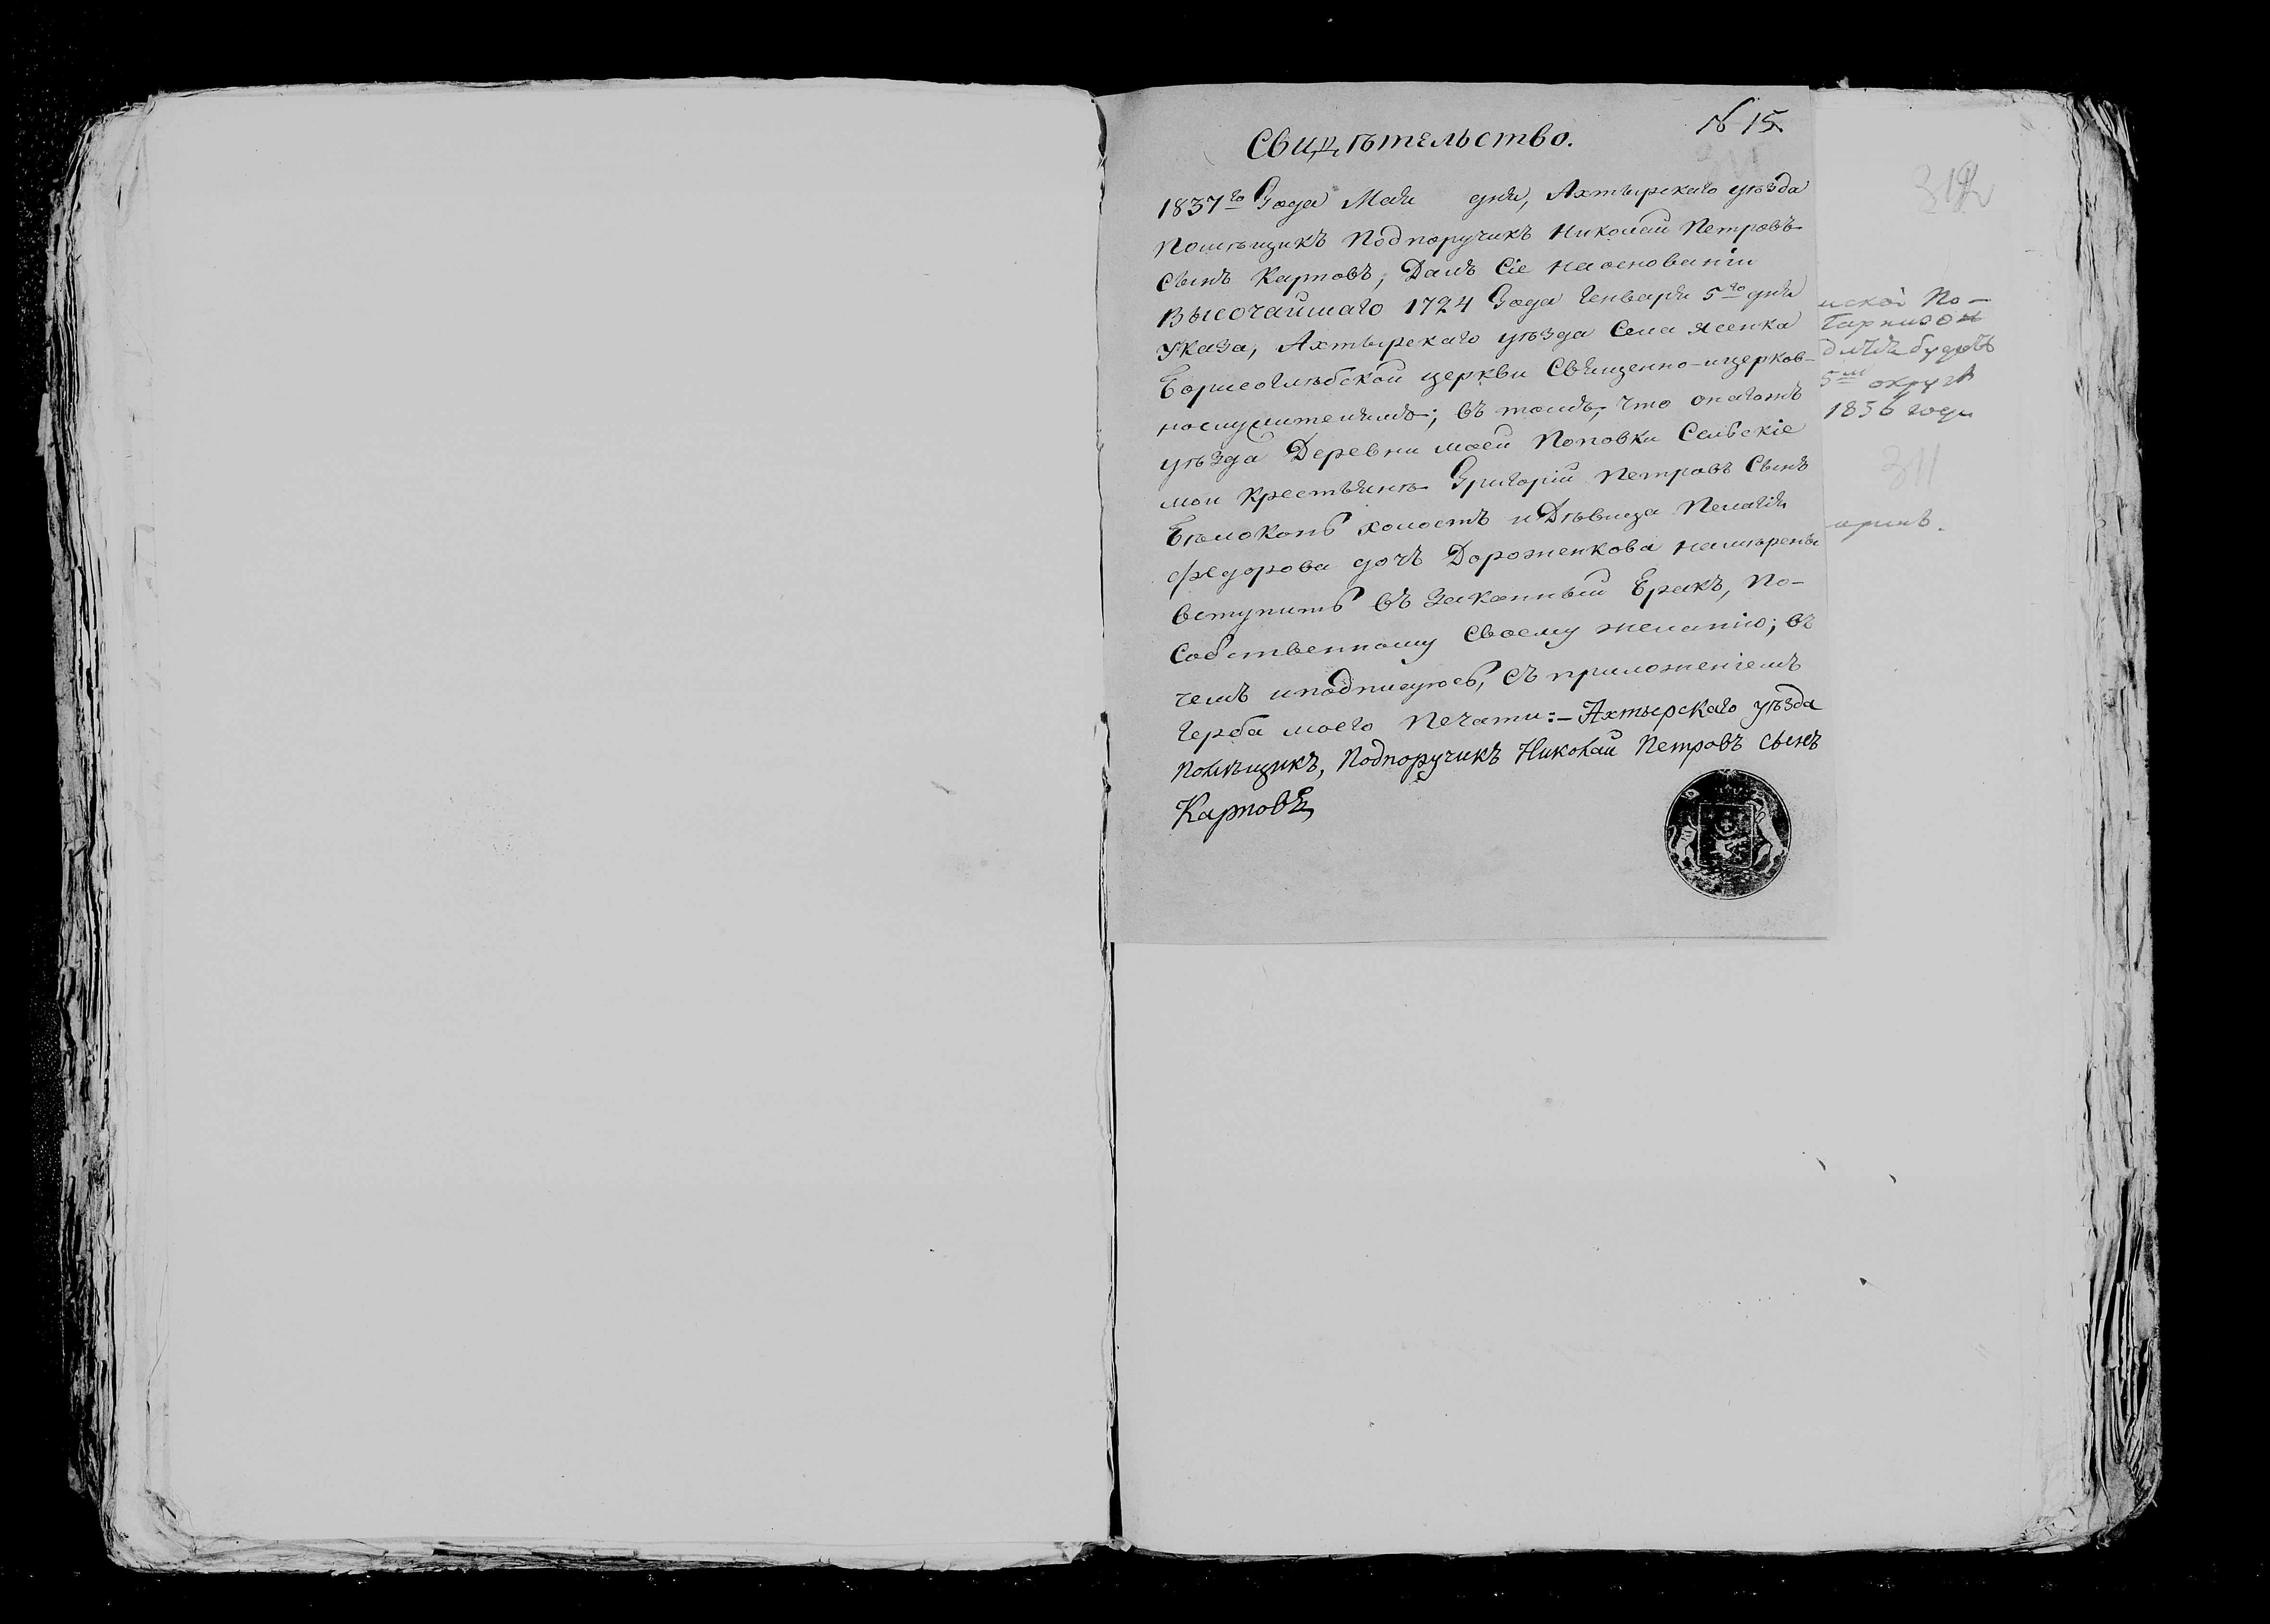 № 15
Свидѣтельство.
1837го Года Мая дня, Ахтырскаго уѣзда
Помѣщикъ Подпоручикъ Николай Петровъ
Сынъ Карповъ, Далъ Сіе на основаніи
Высочайшаго 1724 Года Генваря 5го дня
Указа, Ахтырскаго уѣзда Села Ясенка
Борисоглѣбской церкви Священно-ицерков-
нослужителямъ; въ томъ, что онагожъ
уѣзда Деревни моей Поповки Сельскіе
мои Крестьяне Григорій Петровъ Сынъ
Бѣлоконь холостъ и Дѣвица Пелагія
Федорова дочь Дороженкова намѣрены
вступить въ Законный Бракъ, По-
Собственному Своему желанію; въ
чемъ иподписуюсь, съ приложеніемъ
Герба моего Печати:- Ахтырскаго уѣзда
Помѣщикъ, Подпоручикъ Николай Петровъ сынъ
Карповъ
312
ской По-
Гарнизон
будетъ
5й округа
1836 года
311